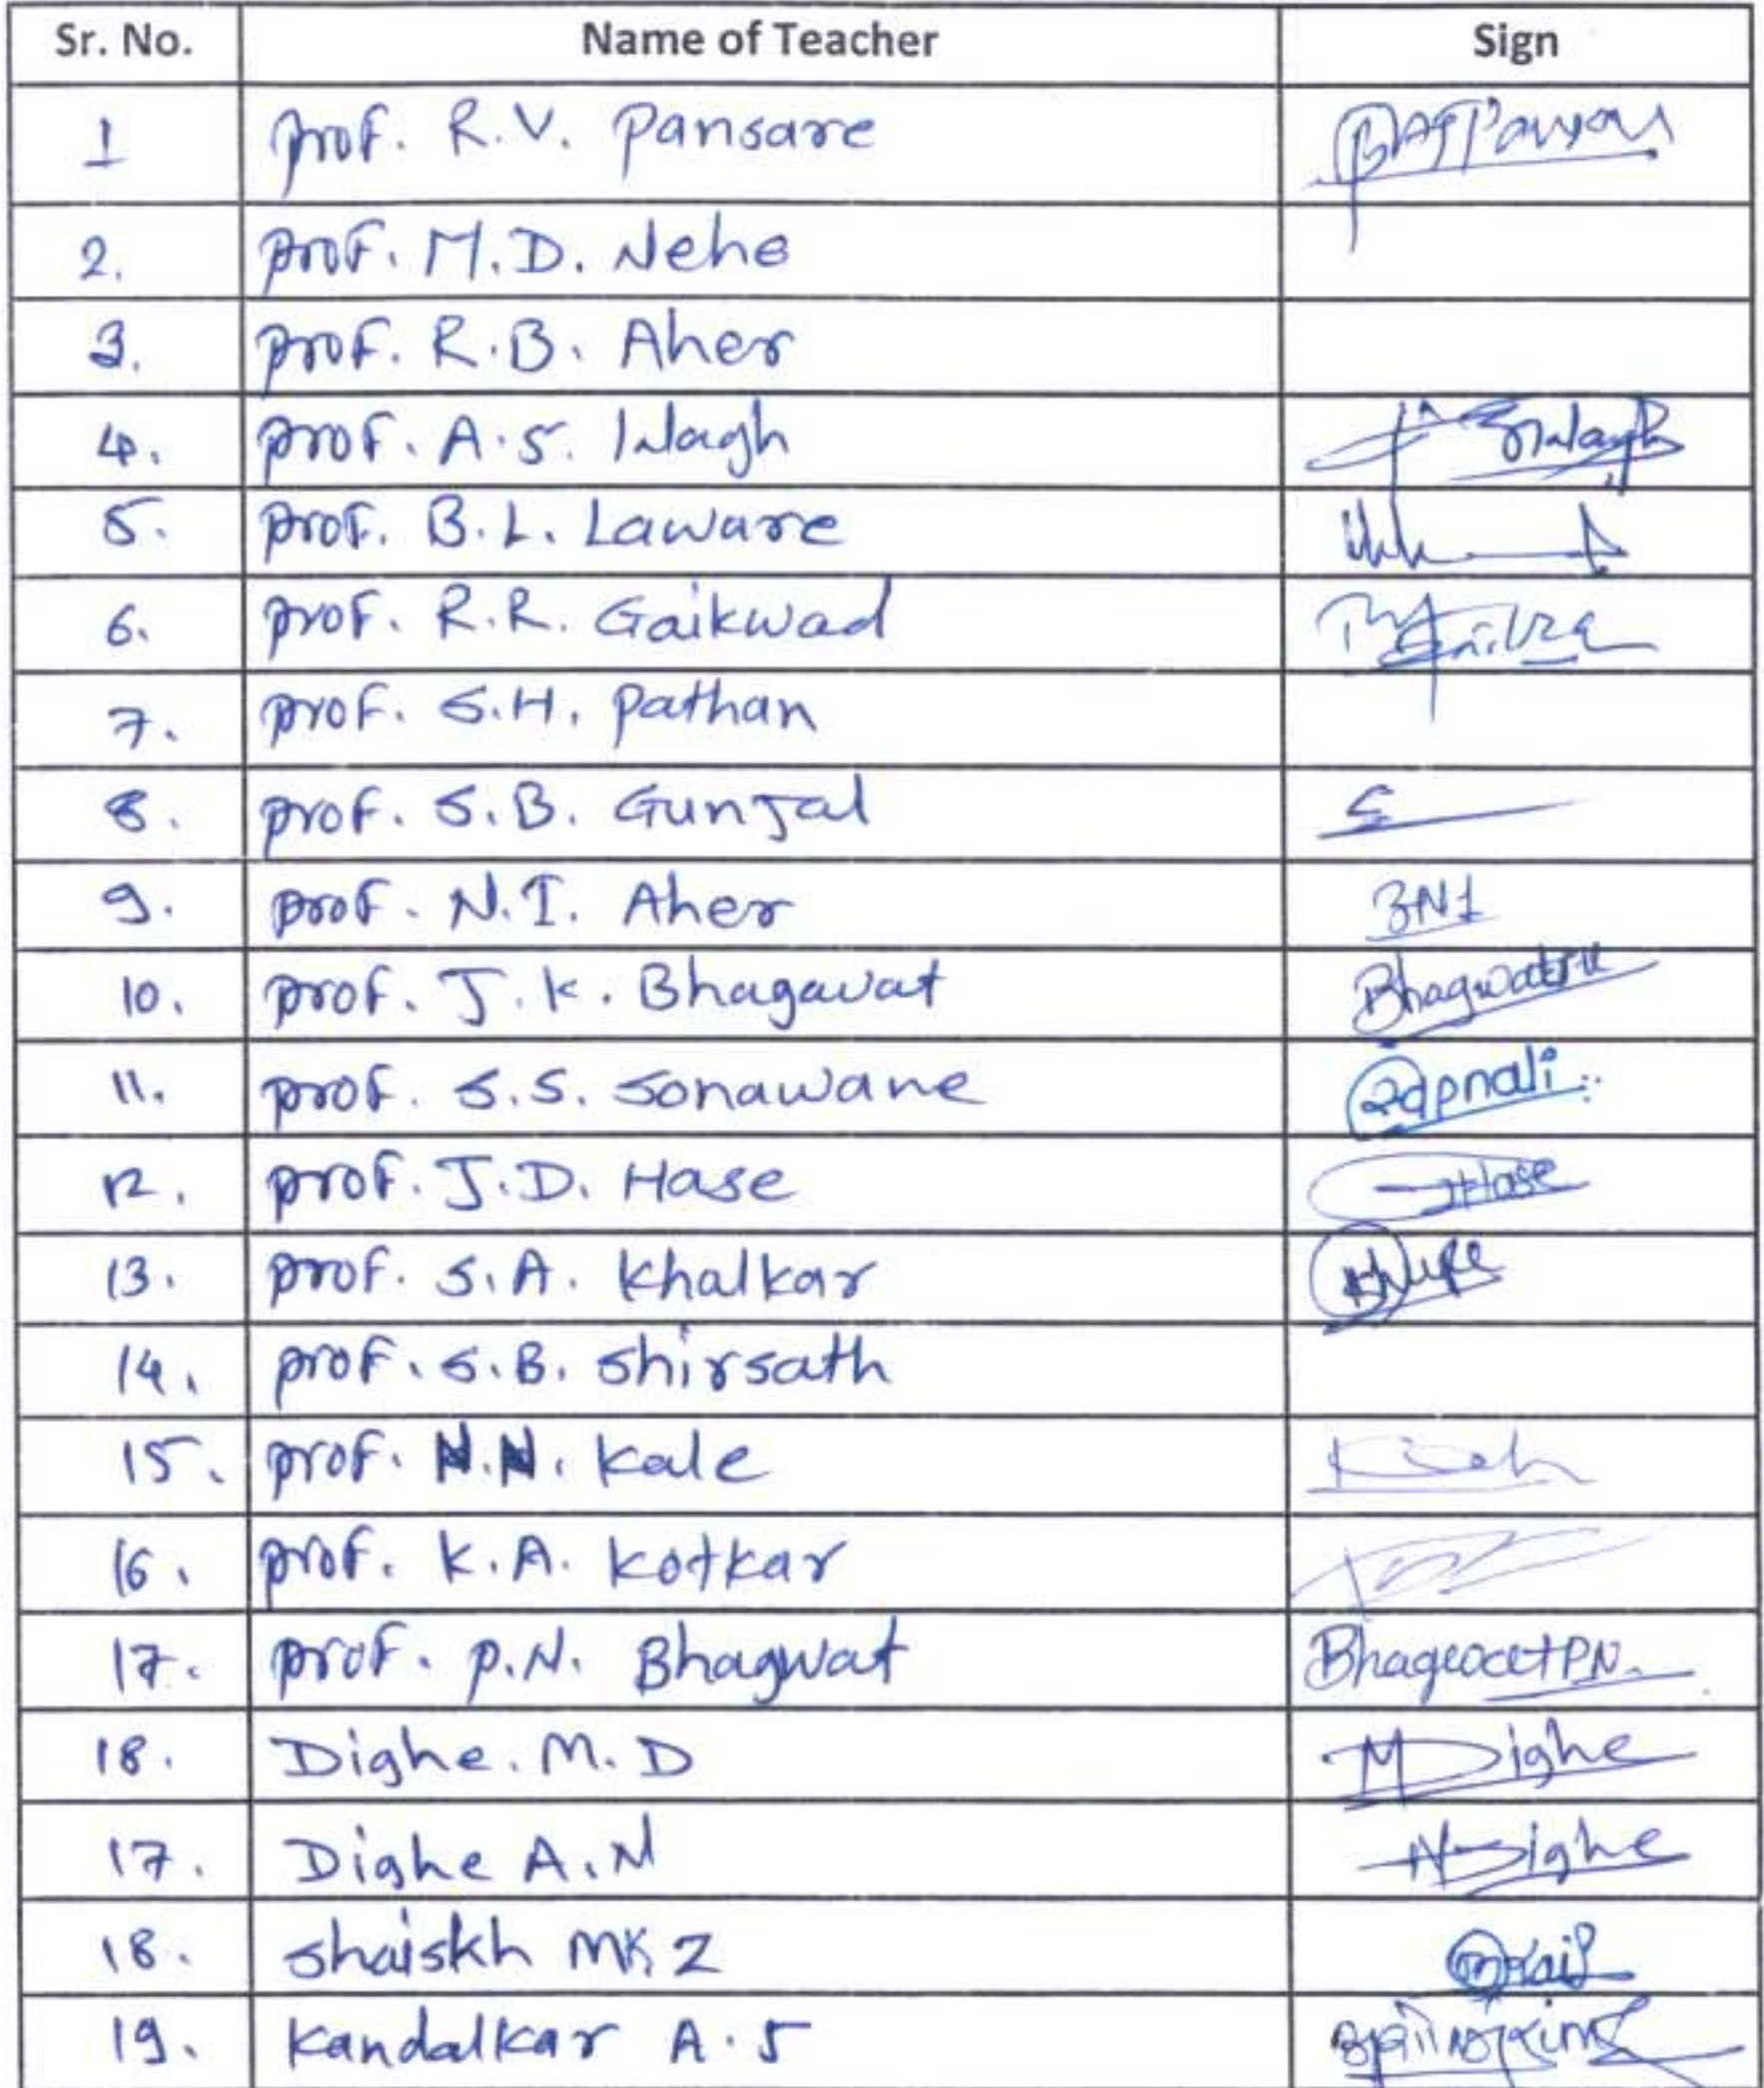 Sr. No. Name of Teacher Sign
1 prof. R.V. Pansare
2. prof. M.D. Nehe
3. prof. R.B. Aher
4. prof. A.S. Wagh
5. prof. B.L. Laware
6. prof. R.R. Gaikwad
7. prof. S.H. Pathan
8. prof. S.B. Gunjal
9. prof. N.I. Aher
10. prof. J.K. Bhagavat
11. prof. S.S. Sonawane
12. prof. J.D. Hase Hase
13. prof. S.A. Khalkar
14. prof. S.B. Shirsath
15. prof. N.N. Kale
16. prof. K.A. Kotkar
17. prof. P.N. Bhagwat Bhagwat PN.
18. Dighe. M. D M Dighe
17. Dighe A.N Dighe
18. Shaiskh MK Z
19. Kandalkar A. S